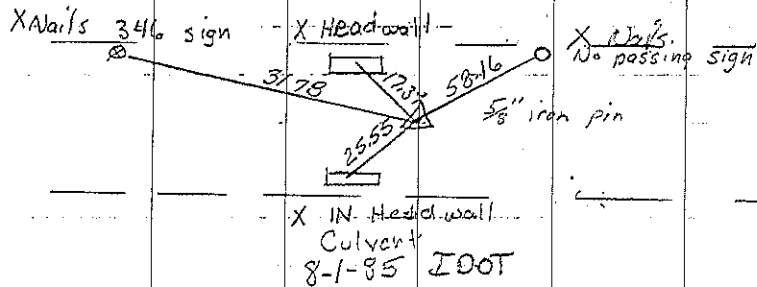 X Nails 346 sign
X Headwall
X Nails
No passing sign
31.78
17.37
58.16
5/8" iron pin
25.55
X IN Headwall
Culvert
8-1-85 IDOT